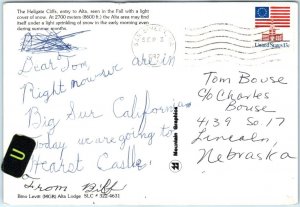 The Hellgate Cliffs, entry to Alta, seen in the Fall with a light
cover of snow. At 2700 meters (8600 ft.) the Alta area may find
itself under a light sprinkling of snow in the early morning even
during summer months.
United States 13c
Dear Tom,
Right now we are in
Big Sur California
Today we are going to
Hearst Castle.
From Biff
Tom Bouse
c/o Charles
Bouse
4139 So. 17
Lincoln,
Nebraska
Mountain Graphics
Eino Levitt (MGR) Alta Lodge SLC * 322-4631
U